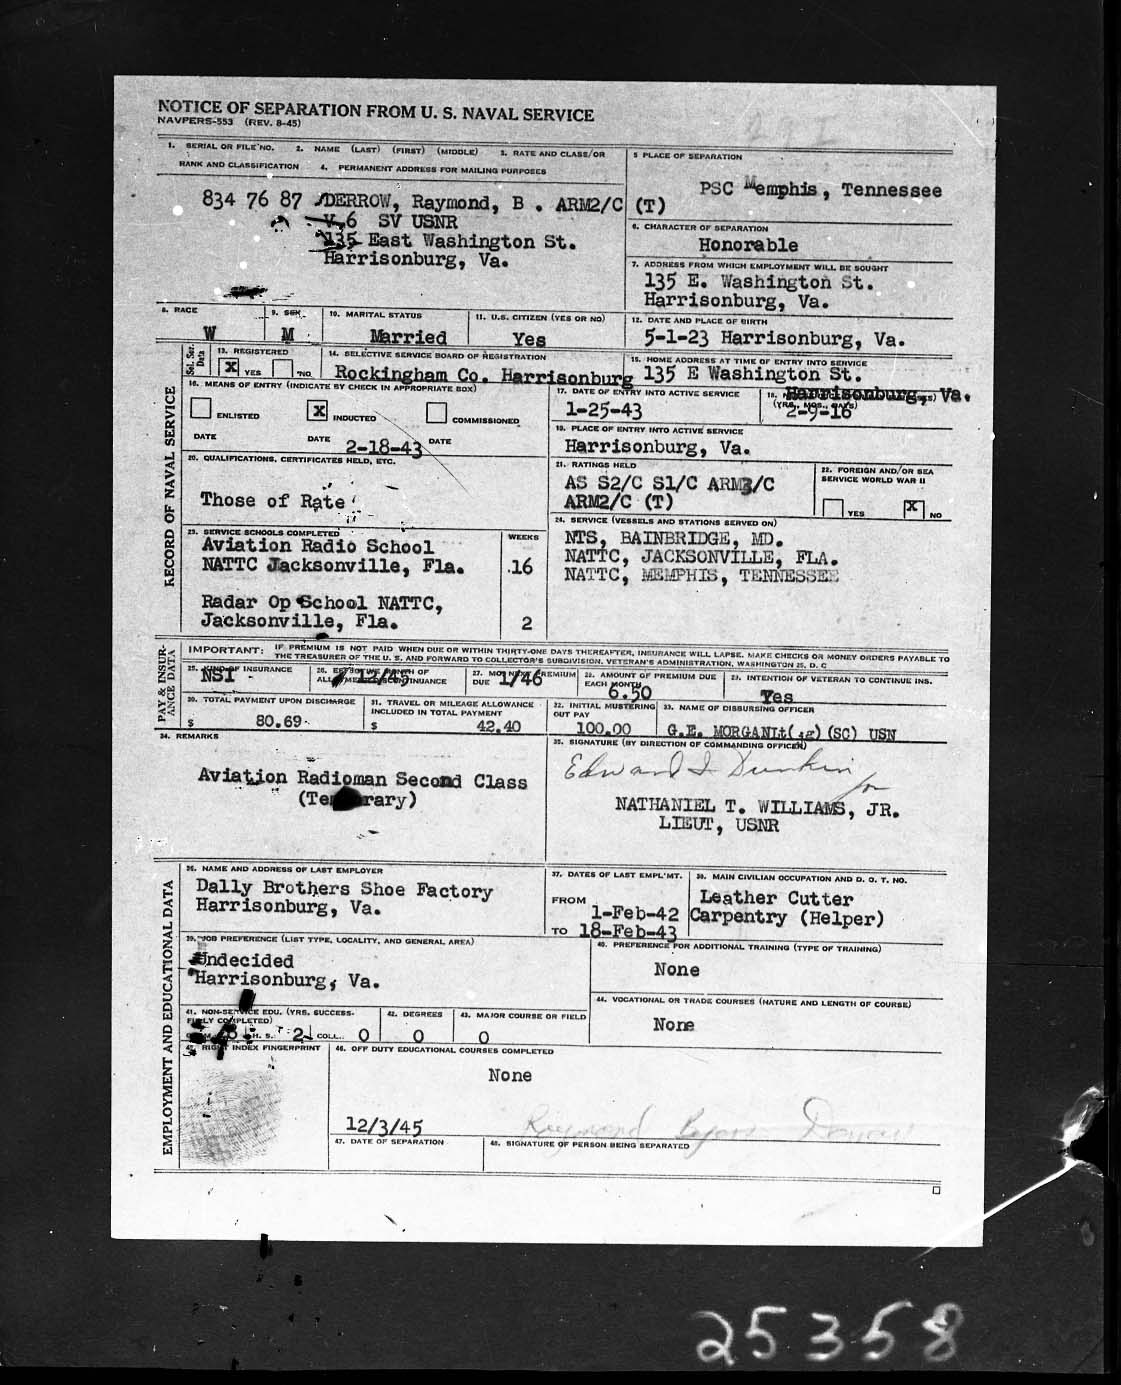 NOTICE OF SEPARATION FROM U. S. NAVAL SERVICE
NAVPERS-553 (REV. 8-45)
1. SERIAL OR FILE NO. 2. NAME (LAST) (FIRST) (MIDDLE) 3. RATE AND CLASS/OR
RANK AND CLASSIFICATION 4. PERMANENT ADDRESS FOR MAILING PURPOSES
834 76 87 DERROW, Raymond, B . ARM2/C (T)
V-6 SV USNR
135 East Washington St.
Harrisonburg, Va.
5 PLACE OF SEPARATION
PSC Memphis, Tennessee
6. CHARACTER OF SEPARATION
Honorable
7. ADDRESS FROM WHICH EMPLOYMENT WILL BE SOUGHT
135 E. Washington St.
Harrisonburg, Va.
8. RACE
W
9. SEX
M
10. MARITAL STATUS
Married
11. U.S. CITIZEN (YES OR NO)
Yes
12. DATE AND PLACE OF BIRTH
5-1-23 Harrisonburg, Va.
Sel. Ser. Data
13. REGISTERED
X YES NO
14. SELECTIVE SERVICE BOARD OF REGISTRATION
Rockingham Co. Harrisonburg
15. HOME ADDRESS AT TIME OF ENTRY INTO SERVICE
135 E Washington St.
Harrisonburg, Va.
RECORD OF NAVAL SERVICE
16. MEANS OF ENTRY (INDICATE BY CHECK IN APPROPRIATE BOX)
ENLISTED X INDUCTED COMMISSIONED
DATE DATE 2-18-43 DATE
17. DATE OF ENTRY INTO ACTIVE SERVICE
1-25-43
18.
(YRS., MOS., DAYS)
2-9-16
19. PLACE OF ENTRY INTO ACTIVE SERVICE
Harrisonburg, Va.
20. QUALIFICATIONS, CERTIFICATES HELD, ETC.
Those of Rate
21. RATINGS HELD
AS S2/C S1/C ARM3/C
ARM2/C (T)
22. FOREIGN AND/OR SEA
SERVICE WORLD WAR II
YES X NO
23. SERVICE SCHOOLS COMPLETED WEEKS
Aviation Radio School
NATTC Jacksonville, Fla. 16
Radar Op School NATTC,
Jacksonville, Fla. 2
24. SERVICE (VESSELS AND STATIONS SERVED ON)
NTS, BAINBRIDGE, MD.
NATTC, JACKSONVILLE, FLA.
NATTC, MEMPHIS, TENNESSEE
PAY & INSURANCE DATA
IMPORTANT: IF PREMIUM IS NOT PAID WHEN DUE OR WITHIN THIRTY-ONE DAYS THEREAFTER, INSURANCE WILL LAPSE. MAKE CHECKS OR MONEY ORDERS PAYABLE TO
THE TREASURER OF THE U. S. AND FORWARD TO COLLECTOR'S SUBDIVISION, VETERAN'S ADMINISTRATION, WASHINGTON 25, D. C
25. KIND OF INSURANCE
NSI
26. EFFECTIVE MONTH OF
ALLOTMENT DISCONTINUANCE
12/45
27. MO. NEXT PREMIUM
DUE 1/46
28. AMOUNT OF PREMIUM DUE
EACH MONTH
6.50
29. INTENTION OF VETERAN TO CONTINUE INS.
Yes
30. TOTAL PAYMENT UPON DISCHARGE
$ 80.69
31. TRAVEL OR MILEAGE ALLOWANCE
INCLUDED IN TOTAL PAYMENT
$ 42.40
32. INITIAL MUSTERING
OUT PAY
100.00
33. NAME OF DISBURSING OFFICER
G.E. MORGANLt(jg)(SC) USN
34. REMARKS
Aviation Radioman Second Class
(Temporary)
35. SIGNATURE (BY DIRECTION OF COMMANDING OFFICER)
Edward I Dunkin
for
NATHANIEL T. WILLIAMS, JR.
LIEUT, USNR
EMPLOYMENT AND EDUCATIONAL DATA
36. NAME AND ADDRESS OF LAST EMPLOYER
Dally Brothers Shoe Factory
Harrisonburg, Va.
37. DATES OF LAST EMPL'MT.
FROM 1-Feb-42
TO 18-Feb-43
38. MAIN CIVILIAN OCCUPATION AND D. O. T. NO.
Leather Cutter
Carpentry (Helper)
39. JOB PREFERENCE (LIST TYPE, LOCALITY, AND GENERAL AREA)
Undecided
Harrisonburg, Va.
40. PREFERENCE FOR ADDITIONAL TRAINING (TYPE OF TRAINING)
None
41. NON-SERVICE EDU. (YRS. SUCCESS-
FULLY COMPLETED)
H. S. 2 COLL. 0
42. DEGREES
0
43. MAJOR COURSE OR FIELD
0
44. VOCATIONAL OR TRADE COURSES (NATURE AND LENGTH OF COURSE)
None
45. RIGHT INDEX FINGERPRINT
46. OFF DUTY EDUCATIONAL COURSES COMPLETED
None
12/3/45
47. DATE OF SEPARATION
Raymond Byon Derrow
48. SIGNATURE OF PERSON BEING SEPARATED
25358